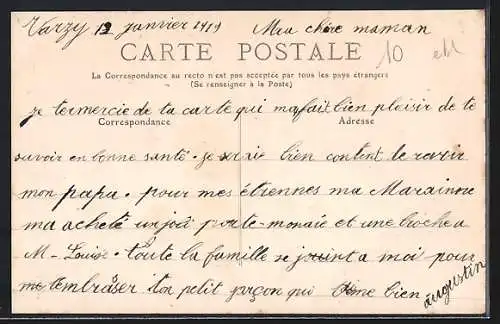 Varzy 12 janvier 1919 Ma chère maman
CARTE POSTALE
10
La Correspondance au recto n'est pas acceptée par tous les pays étrangers
(Se renseigner à la Poste)
je termercie de ta carte qui ma fait bien plaisir de te
Correspondance Adresse
savoir en bonne santé. je serais bien content de ravoir
mon papa. pour mes étrennes ma Marainne
ma acheté un joli porte-monaie et une broche a
M-Louise. toute la famille se jouint a moi pour
me tembrâser ton petit garçon qui t'ême bien
augustin